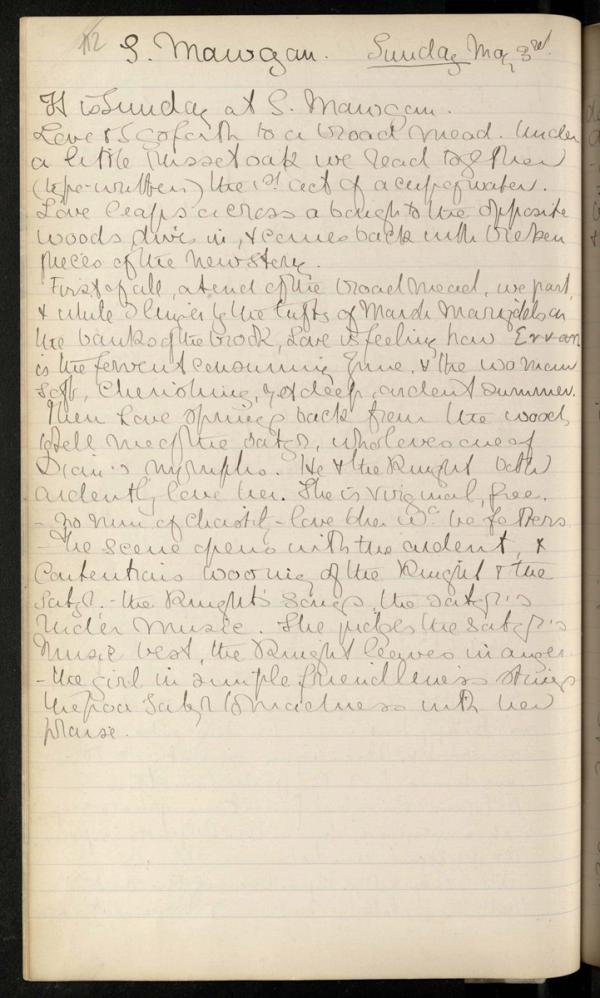 112
S. Mawgan. Sunday May 3rd.
It is Sunday at S. Mawgan.
Love & I go forth to a broad mead. Under
a little russet oak we read together
(type-written) the 1st act of a cup of water.
Love leaps across a bough to the opposite
woods, dives in, & comes back with broken
pieces of the new story.
First of all, at end of the broad mead, we part,
& while I linger by the tufts of Marsh Marigolds on
the banks of the brook, Love is feeling how
is the fervent consuming June, & the woman
soft, cherishing, yet deep, ardent summer.
Then Love springs back from the woods
to tell me of the satyr, who loves one of
Dian's nymphs. He & the Knight both
ardently love her. She is virginal, free.
- no nun of chastity - love to her wd. be fetters
- The scene opens with the ardent, &
contentious wooing of the Knight & the
Satyr, - the Knight's songs, the satyr's
ruder music. She judges the satyr's
music best, the Knight leaves in anger
- the girl in simple friendliness stings
the poor Satyr to madness with her
praise.